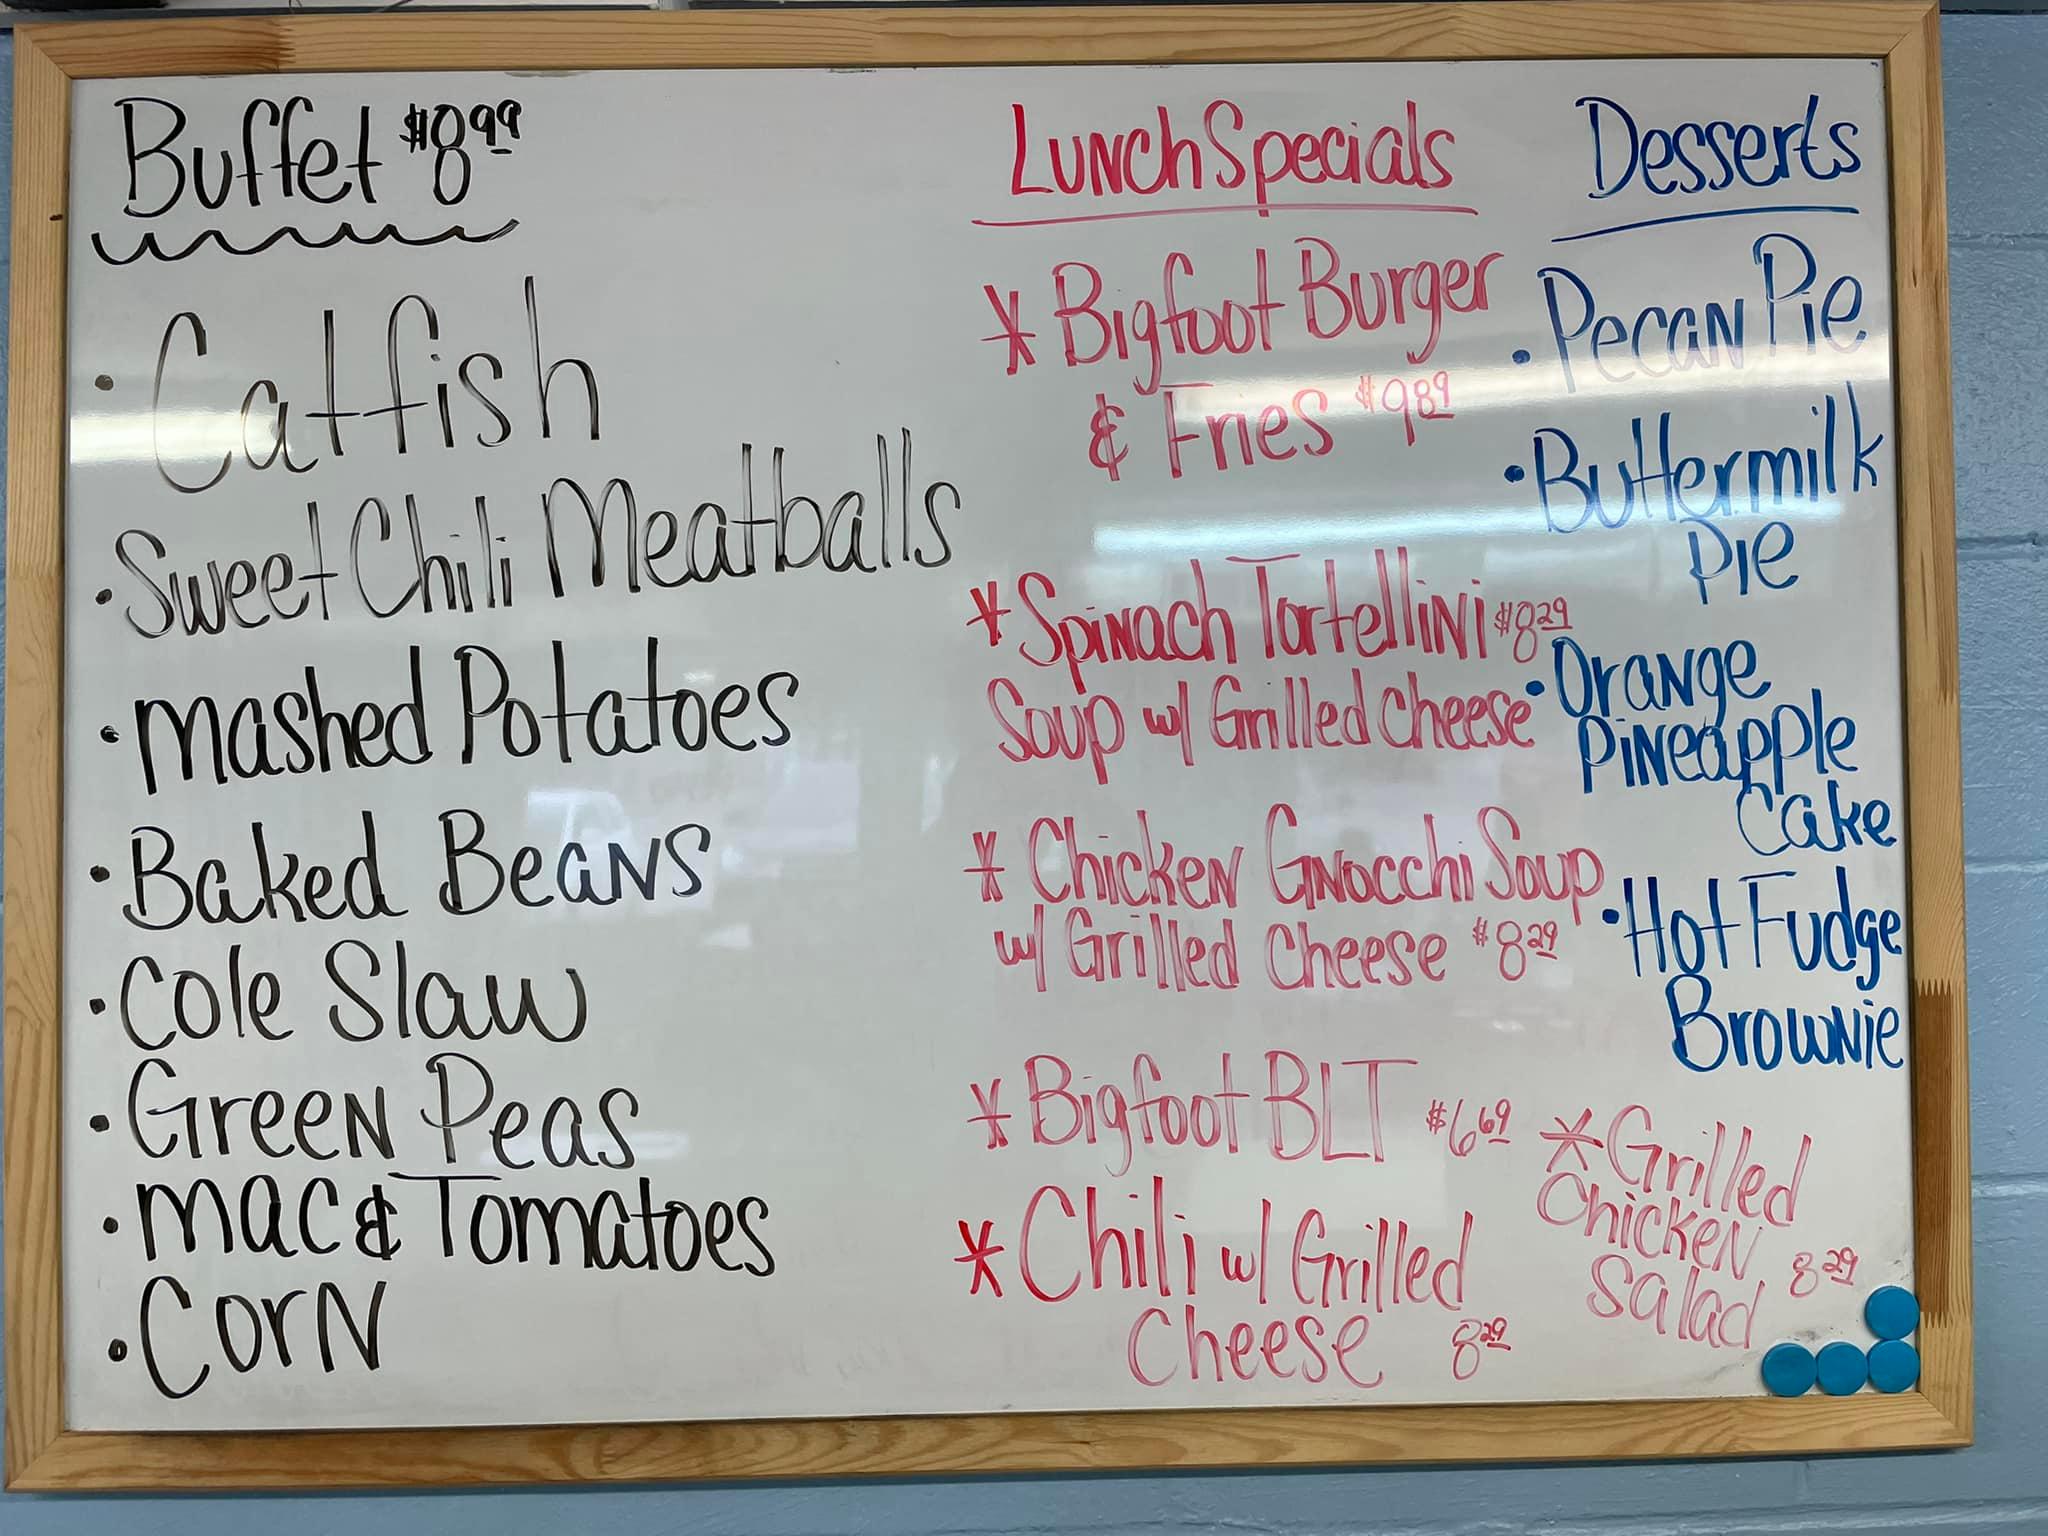 Buffet $8.99
• Catfish
• Sweet Chili Meatballs
• Mashed Potatoes
• Baked Beans
• Cole Slaw
• Green Peas
• Mac & Tomatoes
• Corn
Lunch Specials
* Bigfoot Burger
& Fries $9.89
* Spinach Tortellini $8.29
Soup w/ Grilled Cheese
* Chicken Gnocchi Soup
w/ Grilled Cheese $8.29
* Bigfoot BLT $6.69
* Chili w/ Grilled
Cheese 8.29
Desserts
• Pecan Pie
• Buttermilk
Pie
• Orange
Pineapple
Cake
• Hot Fudge
Brownie
* Grilled
Chicken
Salad 8.29